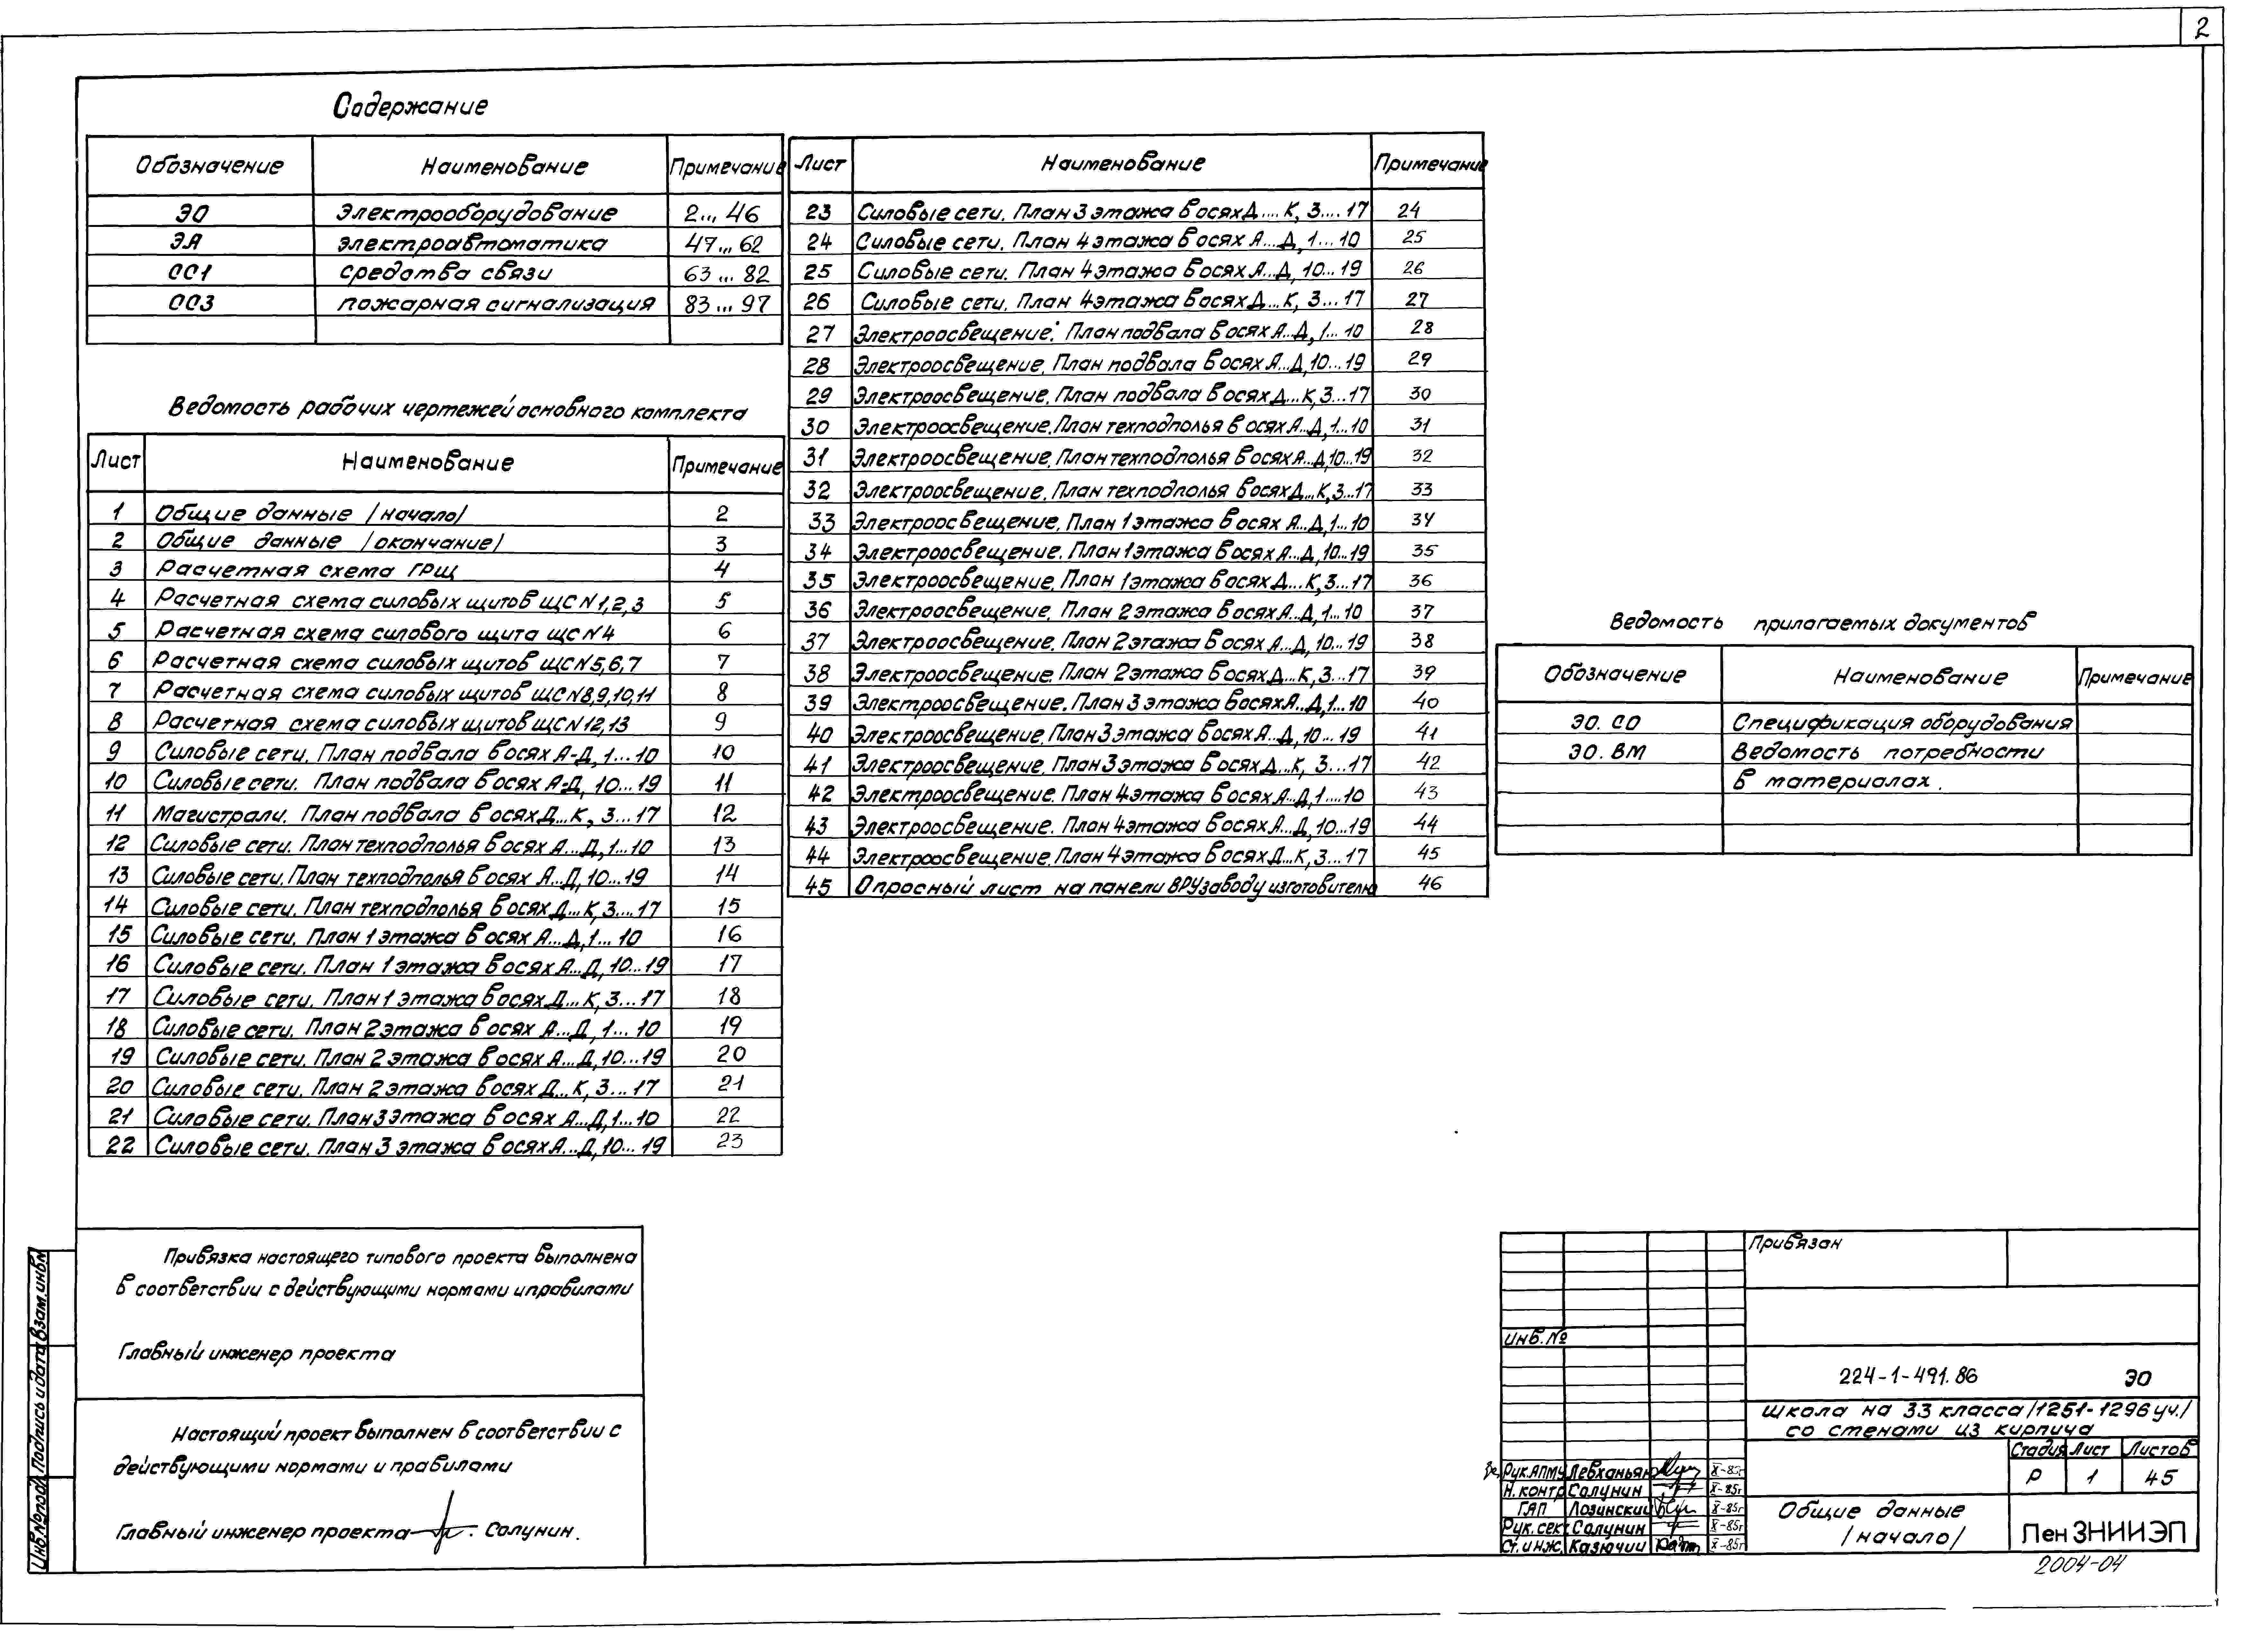 2
Содержание
Обозначение Наименование Примечание
ЭО Электрооборудование 2... 46
ЭА электроавтоматика 47... 62
СС1 средства связи 63... 82
ССЗ пожарная сигнализация 83... 97
Ведомость рабочих чертежей основного комплекта
Лист Наименование Примечание
1 Общие данные /начало/ 2
2 Общие данные /окончание/ 3
3 Расчетная схема ГРЩ 4
4 Расчетная схема силовых щитов ЩС N1,2,3 5
5 Расчетная схема силового щита ЩС N4 6
6 Расчетная схема силовых щитов ЩС N5,6,7 7
7 Расчетная схема силовых щитов ЩС N8,9,10,11 8
8 Расчетная схема силовых щитов ЩС N12,13 9
9 Силовые сети. План подвала в осях А-Д, 1...10 10
10 Силовые сети. План подвала в осях А-Д, 10...19 11
11 Магистрали. План подвала в осях Д...К, 3...17 12
12 Силовые сети. План техподполья в осях А...Д, 1...10 13
13 Силовые сети. План техподполья в осях А...Д, 10...19 14
14 Силовые сети. План техподполья в осях Д...К, 3....17 15
15 Силовые сети. План 1 этажа в осях А...Д, 1...10 16
16 Силовые сети. План 1 этажа в осях А...Д, 10...19 17
17 Силовые сети. План 1 этажа в осях Д...К, 3...17 18
18 Силовые сети. План 2 этажа в осях А...Д, 1...10 19
19 Силовые сети. План 2 этажа в осях А...Д, 10...19 20
20 Силовые сети. План 2 этажа в осях Д...К, 3...17 21
21 Силовые сети. План 3 этажа в осях А...Д, 1...10 22
22 Силовые сети. План 3 этажа в осях А...Д, 10...19 23
Лист Наименование Примечание
23 Силовые сети. План 3 этажа в осях Д....К, 3....17 24
24 Силовые сети. План 4 этажа в осях А...Д, 1...10 25
25 Силовые сети. План 4 этажа в осях А...Д, 10...19 26
26 Силовые сети. План 4 этажа в осях Д...К, 3...17 27
27 Электроосвещение. План подвала в осях А...Д, 1...10 28
28 Электроосвещение. План подвала в осях А...Д, 10...19 29
29 Электроосвещение. План подвала в осях Д...К, 3...17 30
30 Электроосвещение. План техподполья в осях А...Д, 1...10 31
31 Электроосвещение. План техподполья в осях А...Д, 10...19 32
32 Электроосвещение. План техподполья в осях Д...К, 3...17 33
33 Электроосвещение. План 1 этажа в осях А...Д, 1...10 34
34 Электроосвещение. План 1 этажа в осях А...Д, 10...19 35
35 Электроосвещение. План 1 этажа в осях Д...К, 3...17 36
36 Электроосвещение. План 2 этажа в осях А...Д, 1...10 37
37 Электроосвещение. План 2 этажа в осях А...Д, 10...19 38
38 Электроосвещение. План 2 этажа в осях Д...К, 3...17 39
39 Электроосвещение. План 3 этажа в осях А...Д, 1...10 40
40 Электроосвещение. План 3 этажа в осях А...Д, 10...19 41
41 Электроосвещение. План 3 этажа в осях Д...К, 3...17 42
42 Электроосвещение. План 4 этажа в осях А...Д, 1....10 43
43 Электроосвещение. План 4 этажа в осях А...Д, 10...19 44
44 Электроосвещение. План 4 этажа в осях Д...К, 3...17 45
45 Опросный лист на панели ВРУ заводу изготовителю 46
Ведомость прилагаемых документов
Обозначение Наименование Примечание
ЭО. СО Спецификация оборудования
ЭО. ВМ Ведомость потребности
в материалах.
Привязка настоящего типового проекта выполнена
в соответствии с действующими нормами и правилами
Главный инженер проекта
Настоящий проект выполнен в соответствии с
действующими нормами и правилами
Главный инженер проекта Салунин.
Инв.N подл. Подпись и дата Взам.инв.N
Привязан
Инв.№
224-1-491.86 ЭО
Школа на 33 класса /1251-1296 уч./
со стенами из кирпича
Стадия Лист Листов
Р 1 45
Общие данные
/начало/
ПенЗНИИЭП
Рук.АПМ4 Левханьян X-85г
Н.контр Салунин X-85г
ГАП Лозинский X-85г
Рук.сек Салунин X-85г
Ст.инж. Казючиц X-85г
2004-04